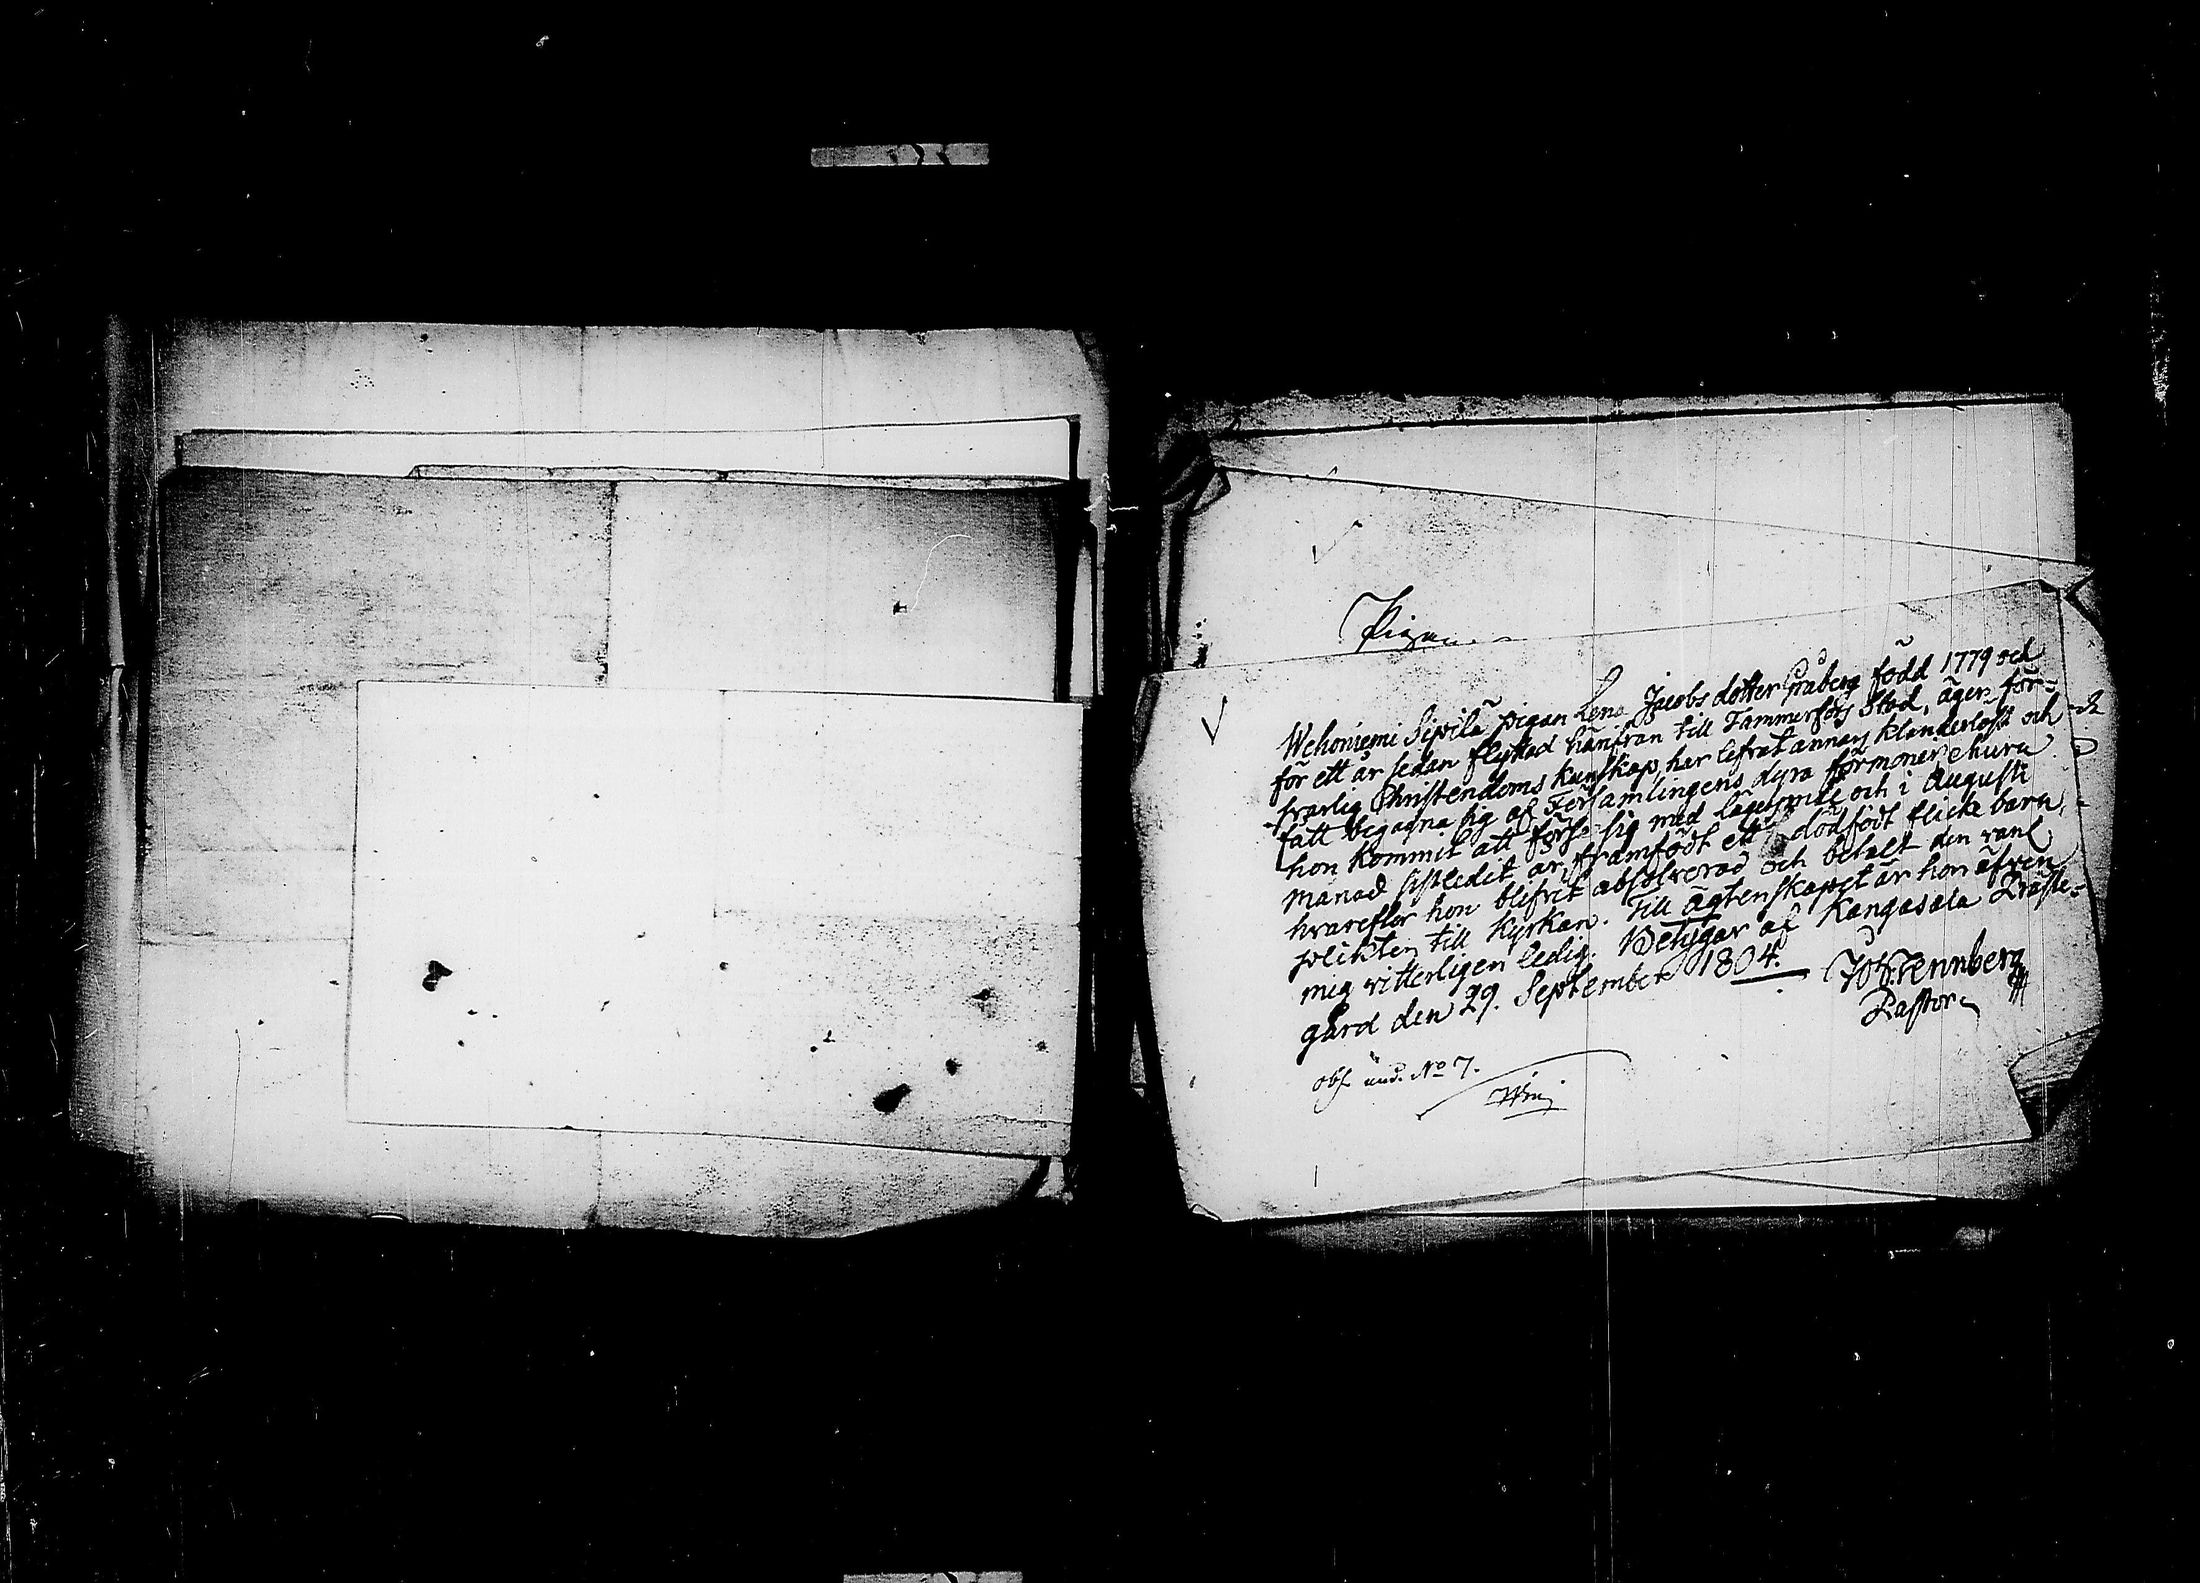 Pigan
Wehoniemi Sipilä pigan Lena Jacobsdotter Graberg född 1779 och
för ett år sedan flyttad hänfrån till Tammerfors Stad, äger för-
svarlig Christendoms kunskap, har lefvat annars klanderlöst och
fått begagna sig af Församlingens dyra förmoner ehuru
hon kommit att förse sig med lägersmål och i Augusti
månad sistledit år, framfödt ett dödfödt flicke barn,
hvarefter hon blifvit absolverad och betalt den vanl
plikten till Kyrkan. Till ägtenskapet är hon äfven
mig vitterligen ledig. Betygar af Kangasala Präste-
gård den 29. September 1804.
Pastor
obs. und. No 7.